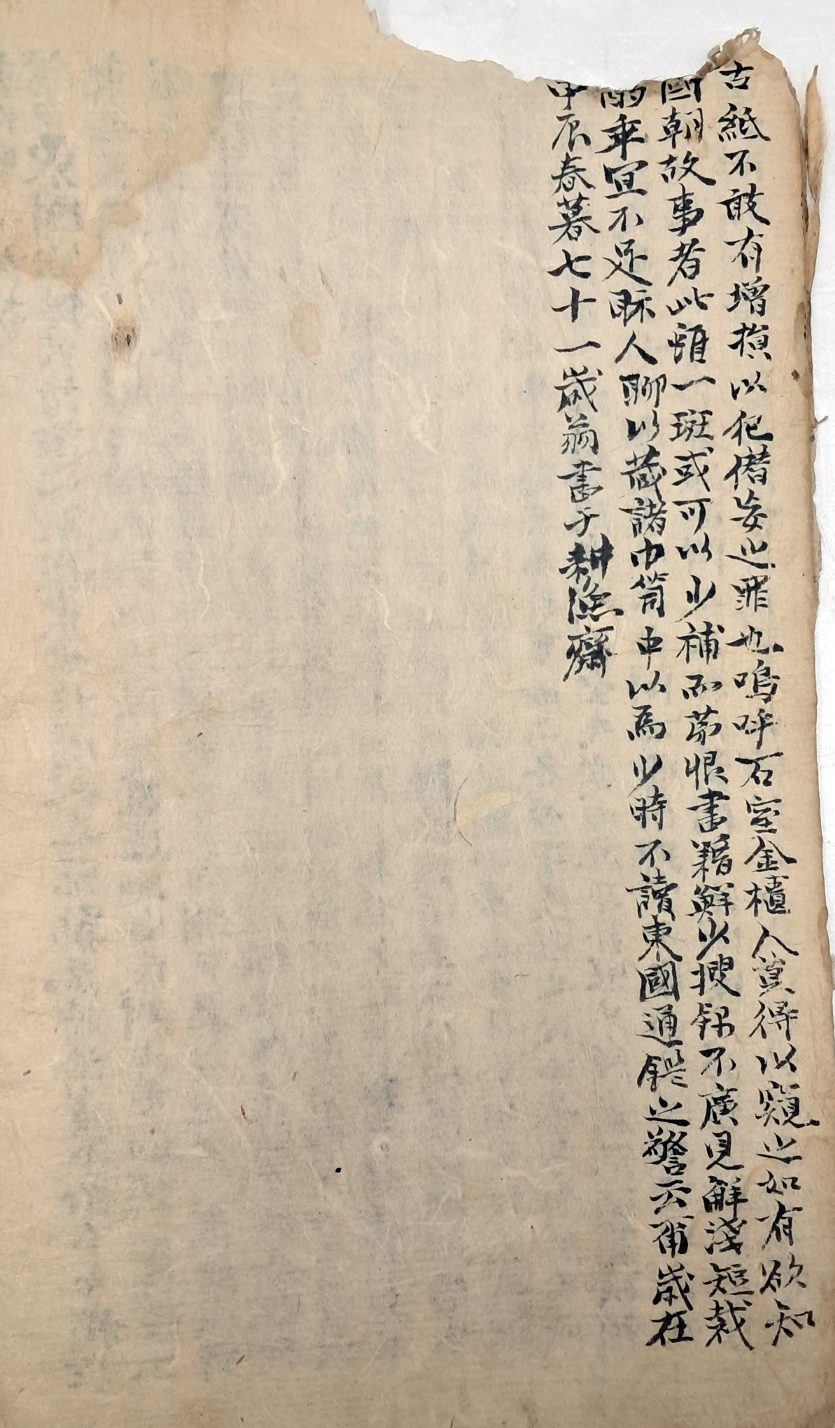 古紙不敢有增損以犯僭妄之罪也嗚呼石室金櫃人莫得以窺之如有欲知
國朝故事者此雖一斑或可以少補而第恨書籍鮮少搜録不廣見解淺短裁
酌乖宜不足眎人聊以藏諸巾笥中以爲少時不讀東國通鑑之警云爾歲在
甲辰春暮七十一歲翁書于耕漁齋